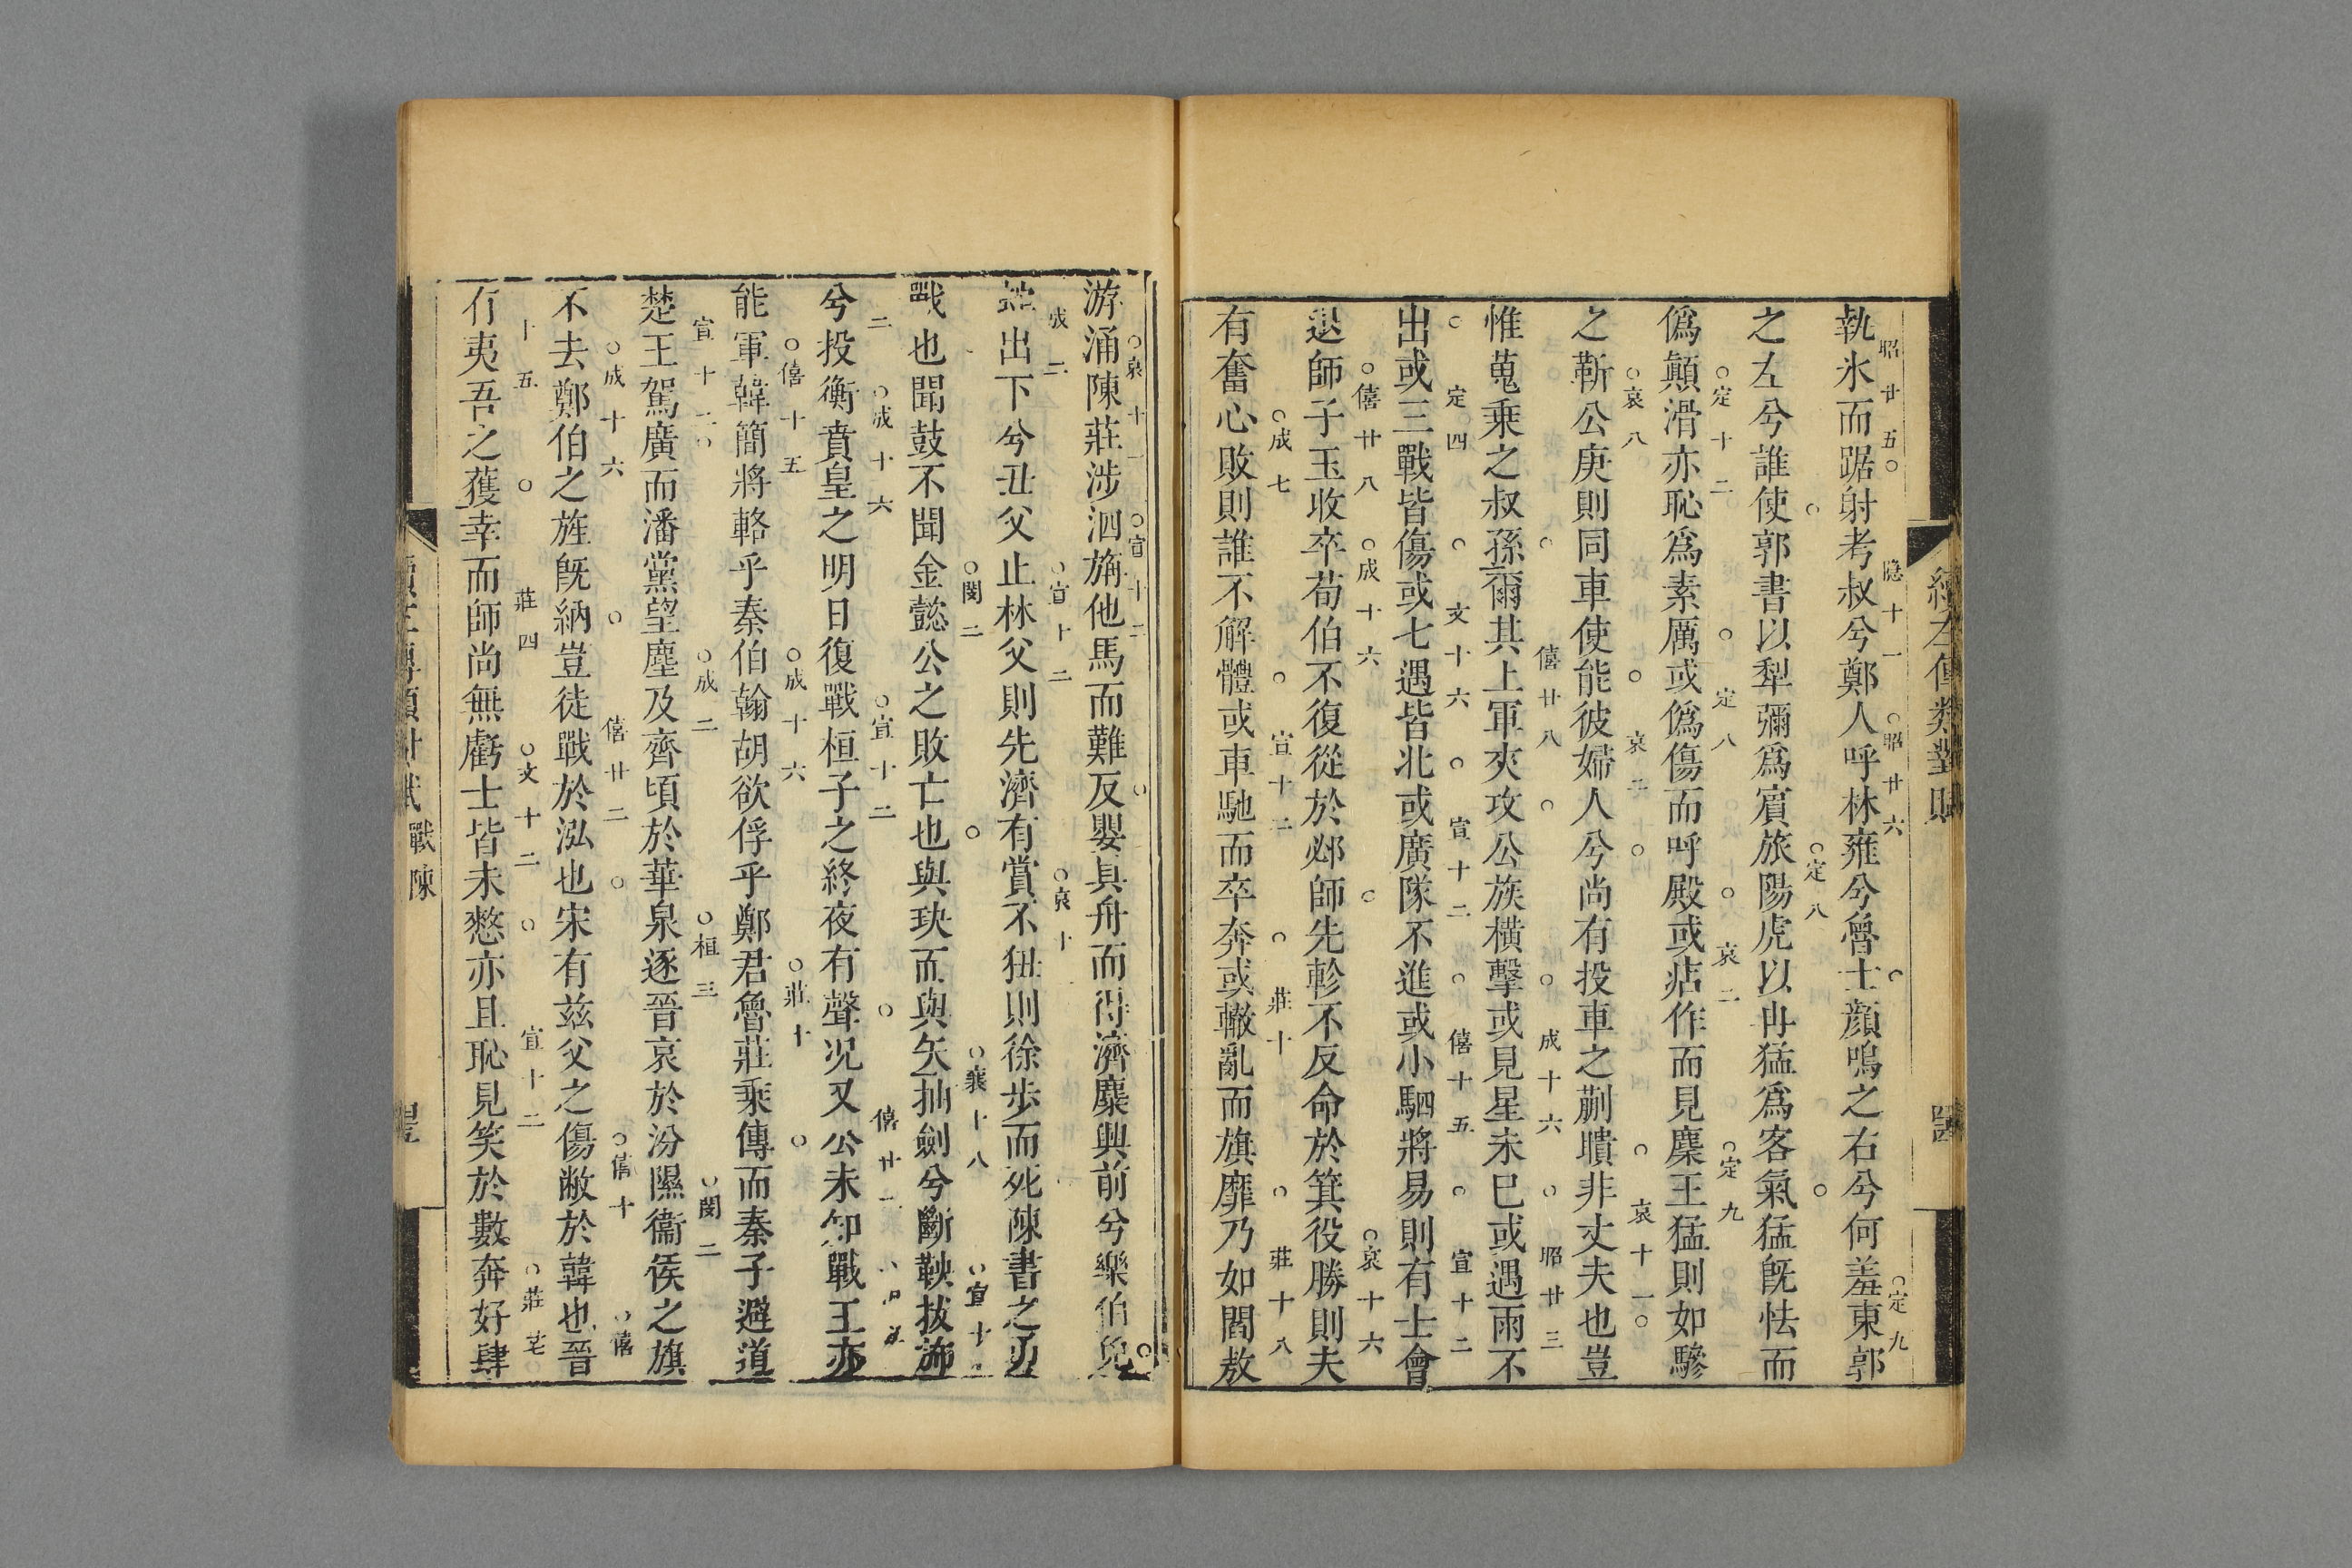 執氷而踞射考叔兮鄭人呼林雍兮魯士顔鳴之右兮何羞東郭
昭廿五○隱十一○昭廿六○定九
之左兮誰使郭書以犁彌爲賓旅陽虎以冉猛爲客氣猛旣怯而
○定八○
僞顛滑亦恥爲素厲或僞傷而呼殿或痁作而見麋王猛則如驂
○定十二○定八○哀二○定九
之靳公庚則同車使能彼婦人兮尚有投車之蒯聵非丈夫也豈
○哀八○哀二○○哀十一○
惟蒐乘之叔孫爾其上軍夾攻公族橫擊或見星未巳或遇雨不
○僖廿八○○成十六○昭廿三
出或三戰皆傷或七遇皆北或廣隊不進或小駟將易則有士會
○定四○文十六○宣十二○僖十五○宣十二
退師子玉收卒荀伯不復從於邲師先軫不反命於箕役勝則夫
○僖廿八○成十六○○哀十六
有奮心敗則誰不解體或車馳而卒奔或轍亂而旗靡乃如閻敖
○成七○宣十二○莊十○莊十八
續左傳類對賦
游涌陳莊涉泗旃他馬而難反嬰具舟而得濟麋興前兮樂伯兌
○哀十一○宣十二○○
出下兮丑父止林父則先濟有賞不狃則徐歩而死陳書之
成二○宣十二○哀十
戰也聞鼓不聞金懿公之敗亡也與玦而與矢抽劍兮斷鞅拔旆
○閔二○○襄十八○宣十二
兮投衡賁皇之明日復戰桓子之終夜有聲况又公未知戰王亦
二○成十六○宣十二○僖廿二
能軍韓簡將輅乎秦伯翰胡欲俘乎鄭君魯莊乘傳而秦子避道
○僖十五○成十六○莊十○
楚王駕廣而潘黨望塵及齊頃於華泉逐晉哀於汾隰衞侯之旗
宣十二○○成二○桓三○閔二
不去鄭伯之旌旣納豈徒戰於泓也宋有玆父之傷敝於韓也晉
○成十六○僖廿二○○僖十○僖
有夷吾之獲幸而師尚無虧士皆未憗亦且恥見笑於數奔好肆
十五○莊四○文十二○宣十二○莊
戰陳